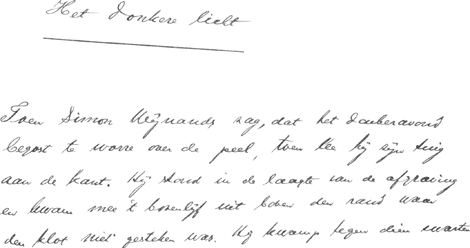 Het donkere licht
Toen Simon Wijnands zag, dat het donkeravond
begost te worre over de peel, toen lee hij zijn tuig
aan de kant. Hij stond in de laagte van de afgraving
en kwam mee 't bovenlijf uit boven den rand waar
den klot niet gestoken was. Hij kwamp tegen dien zwarten